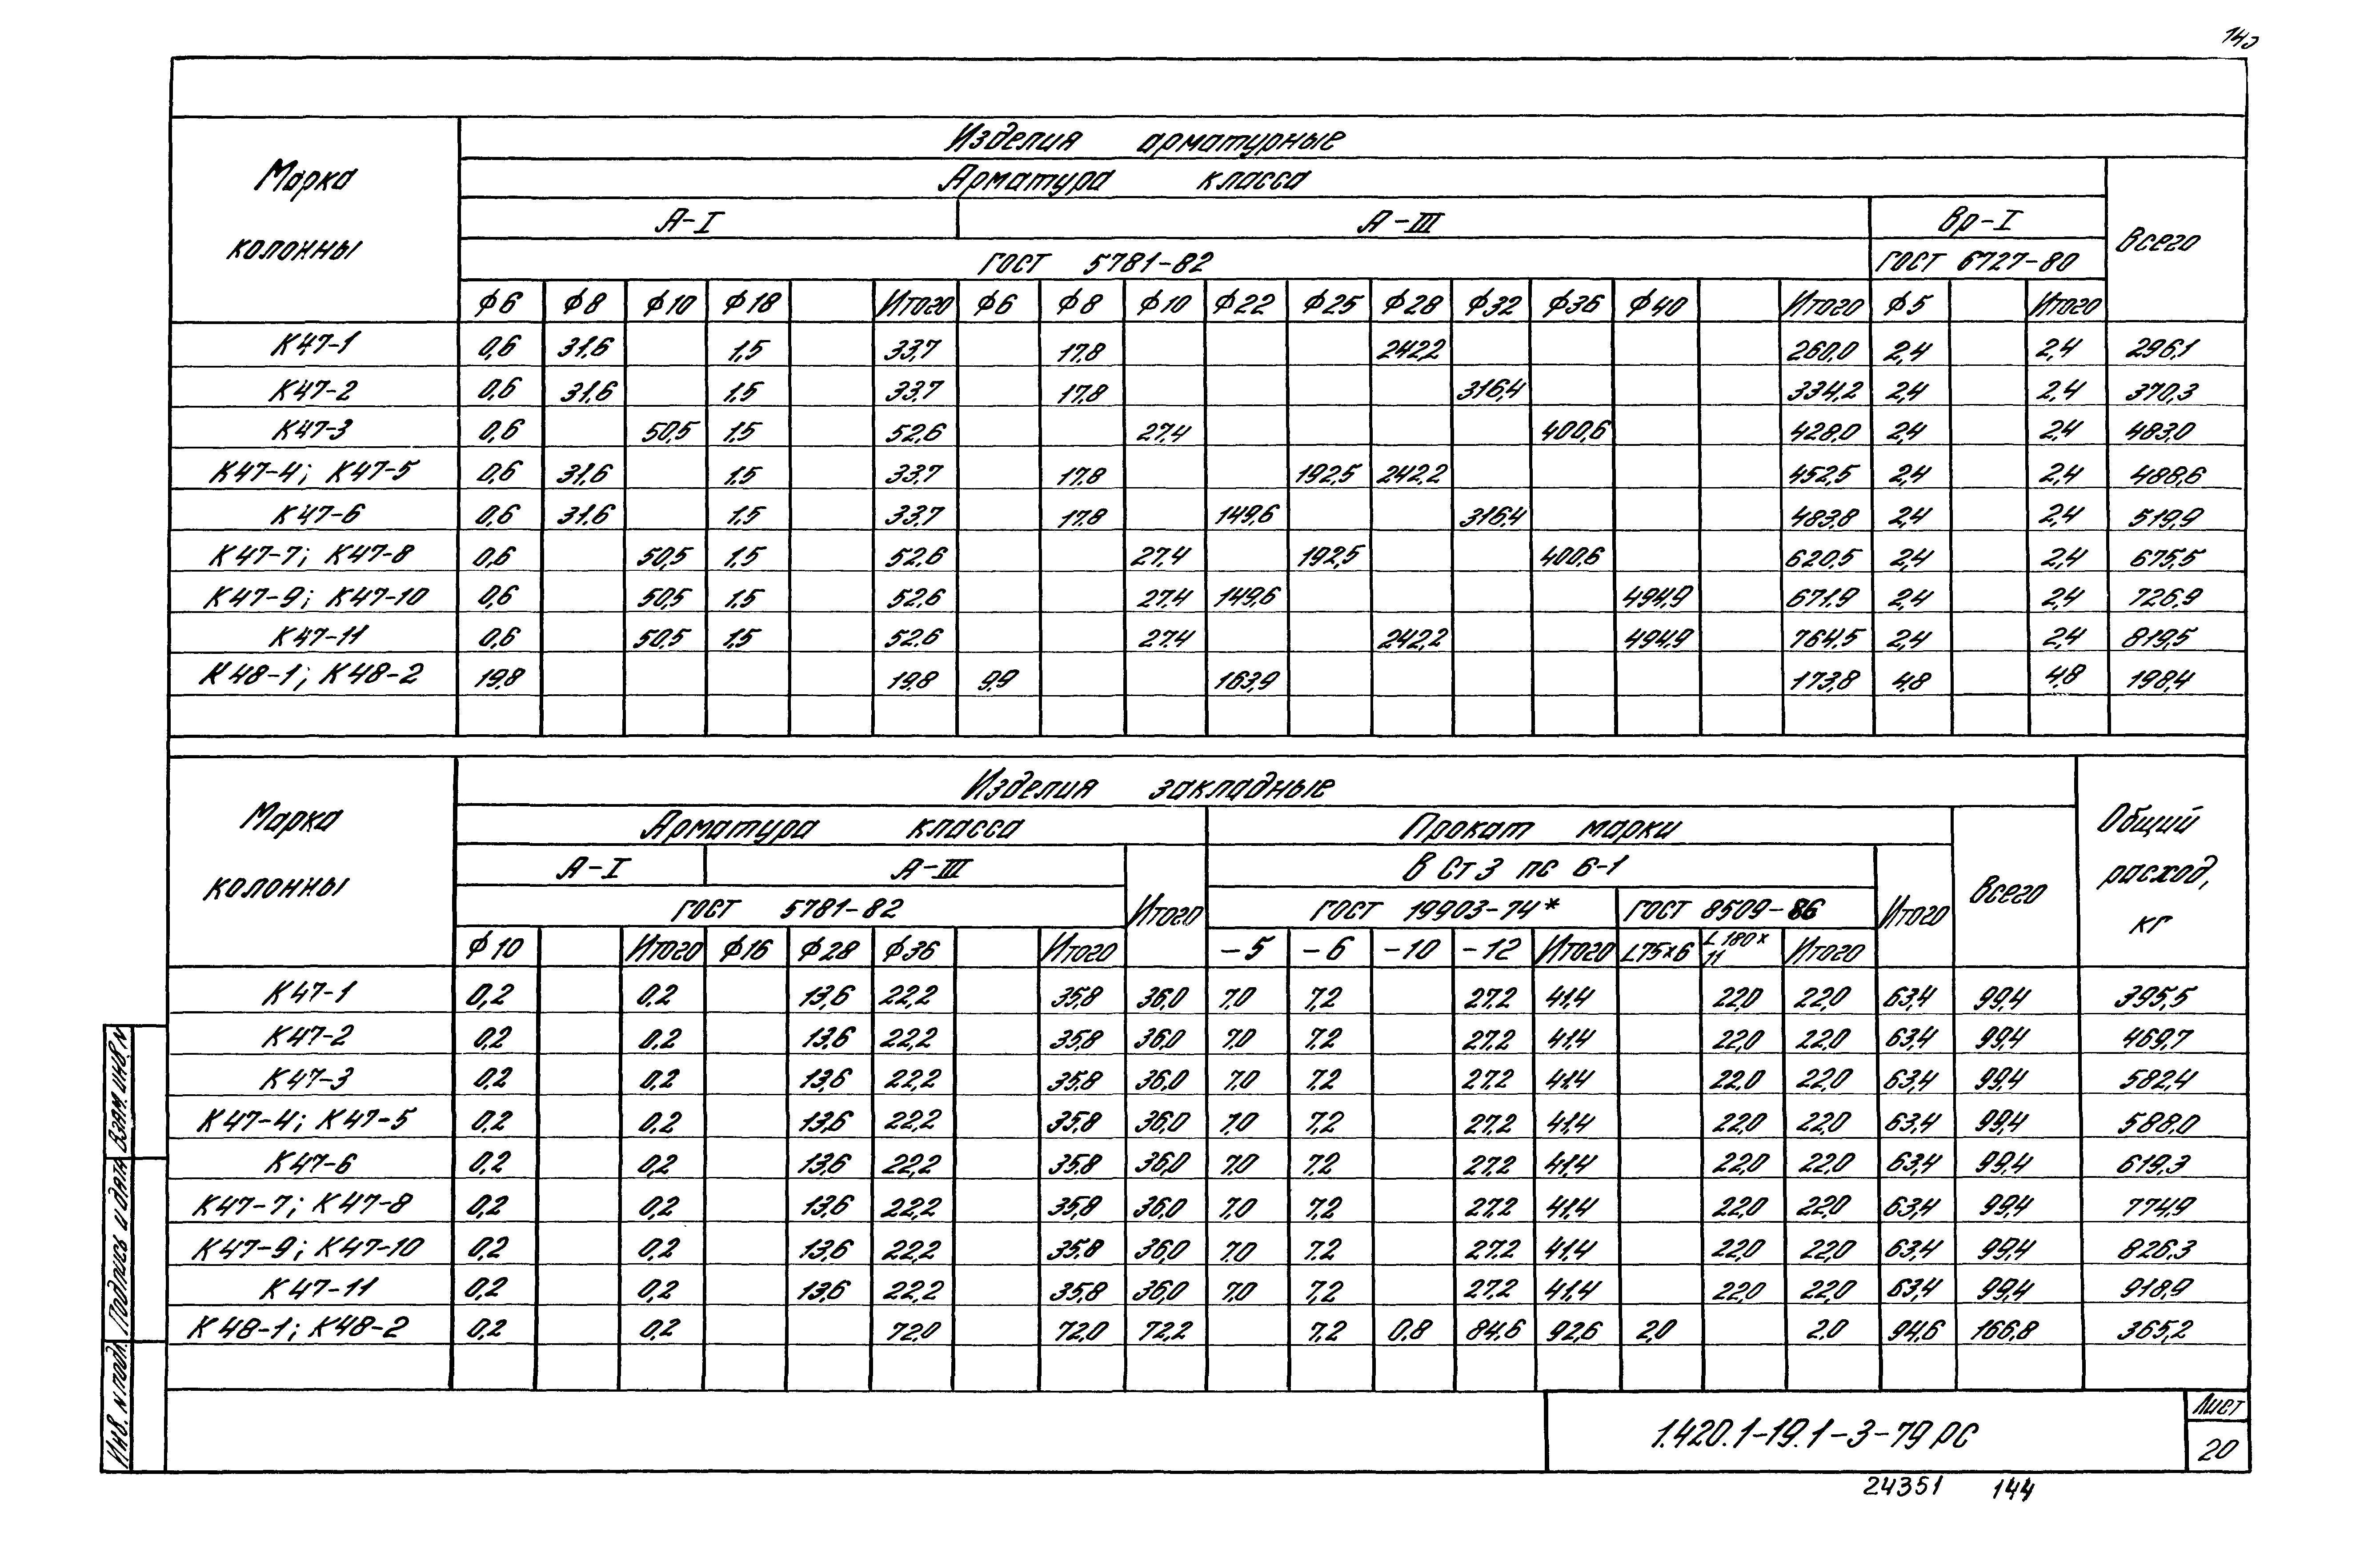 143
Изделия арматурные
Марка колонны
Арматура класса
Всего
А-I А-III Вр-I
ГОСТ 5781-82 ГОСТ 6727-80
ф6 ф8 ф10 ф18 Итого ф6 ф8 ф10 ф22 ф25 ф28 ф32 ф36 ф40 Итого ф5 Итого
К47-1 0,6 31,6 1,5 33,7 17,8 242,2 260,0 2,4 2,4 296,1
К47-2 0,6 31,6 1,5 33,7 17,8 316,4 334,2 2,4 2,4 370,3
К47-3 0,6 50,5 1,5 52,6 27,4 400,6 428,0 2,4 2,4 483,0
К47-4; К47-5 0,6 31,6 1,5 33,7 17,8 192,5 242,2 452,5 2,4 2,4 488,6
К47-6 0,6 31,6 1,5 33,7 17,8 149,6 316,4 483,8 2,4 2,4 519,9
К47-7; К47-8 0,6 50,5 1,5 52,6 27,4 192,5 400,6 620,5 2,4 2,4 675,5
К47-9; К47-10 0,6 50,5 1,5 52,6 27,4 149,6 494,9 671,9 2,4 2,4 726,9
К47-11 0,6 50,5 1,5 52,6 27,4 242,2 494,9 764,5 2,4 2,4 819,5
К48-1; К48-2 19,8 19,8 9,9 163,9 173,8 4,8 4,8 198,4
Изделия закладные
Марка колонны
Общий расход, кг
Арматура класса Прокат марки
Всего
А-I А-III В Ст 3 пс 6-1
Итого Итого
ГОСТ 5781-82 ГОСТ 19903-74* ГОСТ 8509-86
ф10 Итого ф16 ф28 ф36 Итого -5 -6 -10 -12 Итого L75×6 L180×11 Итого
К47-1 0,2 0,2 13,6 22,2 35,8 36,0 7,0 7,2 27,2 41,4 22,0 22,0 63,4 99,4 395,5
К47-2 0,2 0,2 13,6 22,2 35,8 36,0 7,0 7,2 27,2 41,4 22,0 22,0 63,4 99,4 469,7
К47-3 0,2 0,2 13,6 22,2 35,8 36,0 7,0 7,2 27,2 41,4 22,0 22,0 63,4 99,4 582,4
К47-4; К47-5 0,2 0,2 13,6 22,2 35,8 36,0 7,0 7,2 27,2 41,4 22,0 22,0 63,4 99,4 588,0
К47-6 0,2 0,2 13,6 22,2 35,8 36,0 7,0 7,2 27,2 41,4 22,0 22,0 63,4 99,4 619,3
К47-7; К47-8 0,2 0,2 13,6 22,2 35,8 36,0 7,0 7,2 27,2 41,4 22,0 22,0 63,4 99,4 774,9
К47-9; К47-10 0,2 0,2 13,6 22,2 35,8 36,0 7,0 7,2 27,2 41,4 22,0 22,0 63,4 99,4 826,3
К47-11 0,2 0,2 13,6 22,2 35,8 36,0 7,0 7,2 27,2 41,4 22,0 22,0 63,4 99,4 918,9
К48-1; К48-2 0,2 0,2 72,0 72,0 72,2 7,2 0,8 84,6 92,6 2,0 2,0 94,6 166,8 365,2
Инв. N подл. Подпись и дата Взам. инв. N
1.420.1-19.1-3-79 РС
Лист
20
24351 144